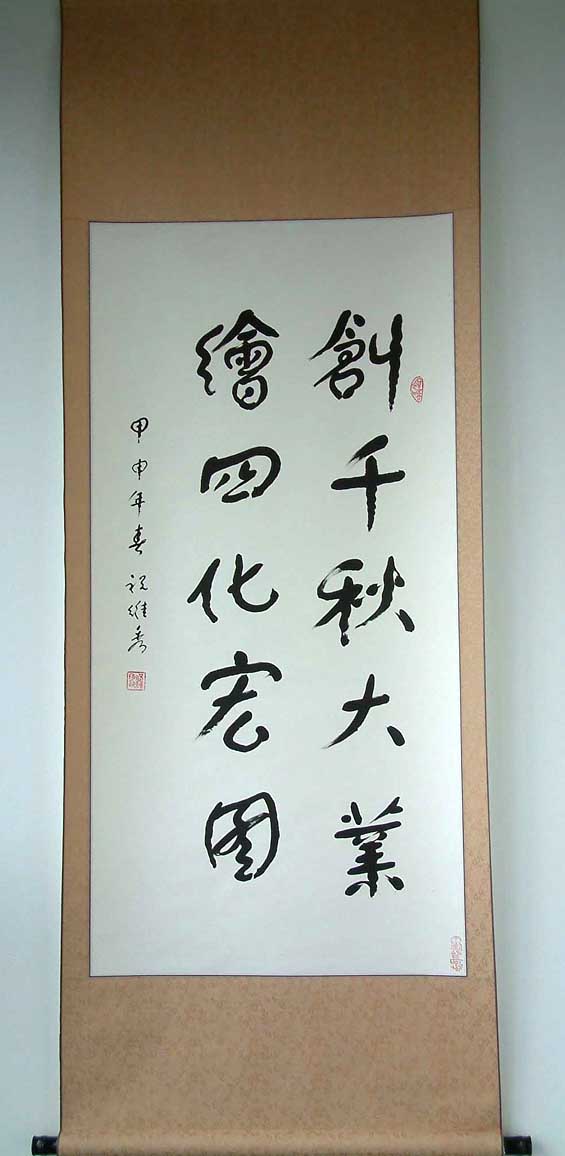 創千秋大業
繪四化宏图
甲申年春 祝維秀